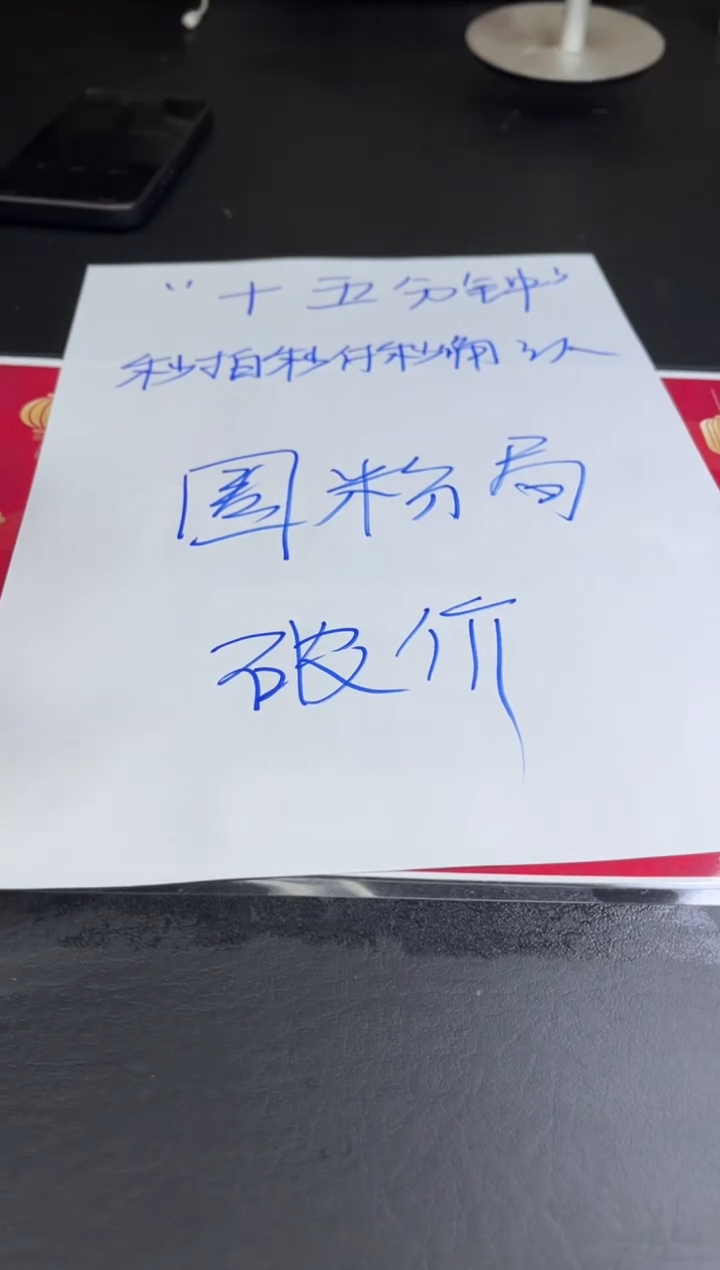 “十五分钟”
秒拍秒付秒确认
圈粉局
破价